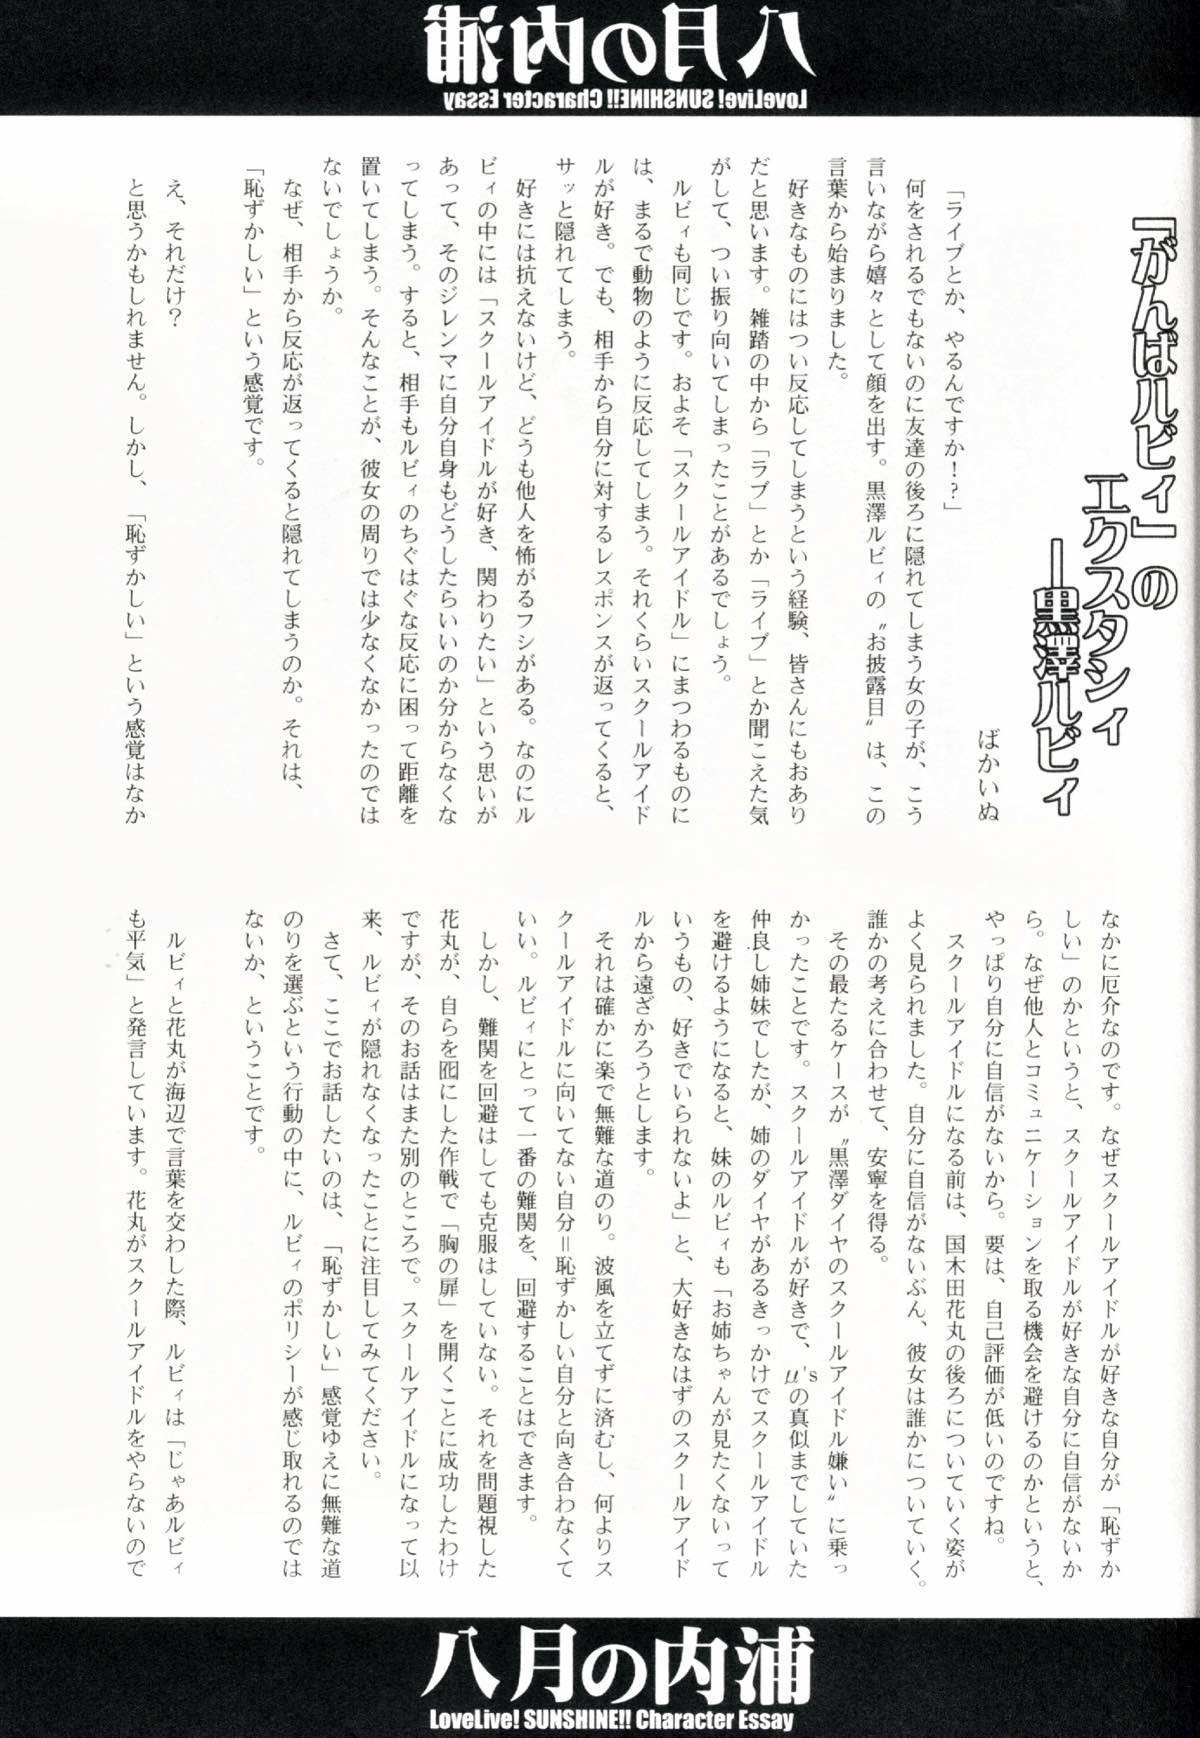 八月の内浦
LoveLive! SUNSHINE!! Character Essay
『がんばルビィ』の
エクスタシィ
―黒澤ルビィ
ばかいぬ
「ライブとか、やるんですか！？」
何をされるでもないのに友達の後ろに隠れてしまう女の子が、こう
言いながら嬉々として顔を出す。黒澤ルビィの〝お披露目〟は、この
言葉から始まりました。
好きなものにはつい反応してしまうという経験、皆さんにもおあり
だと思います。雑踏の中から「ラブ」とか「ライブ」とか聞こえた気
がして、つい振り向いてしまったことがあるでしょう。
ルビィも同じです。およそ「スクールアイドル」にまつわるものに
は、まるで動物のように反応してしまう。それくらいスクールアイド
ルが好き。でも、相手から自分に対するレスポンスが返ってくると、
サッと隠れてしまう。
好きには抗えないけど、どうも他人を怖がるフシがある。なのにル
ビィの中には「スクールアイドルが好き、関わりたい」という思いが
あって、そのジレンマに自分自身もどうしたらいいのか分からなくな
ってしまう。すると、相手もルビィのちぐはぐな反応に困って距離を
置いてしまう。そんなことが、彼女の周りでは少なくなかったのでは
ないでしょうか。
なぜ、相手から反応が返ってくると隠れてしまうのか。それは、
「恥ずかしい」という感覚です。
え、それだけ？
と思うかもしれません。しかし、「恥ずかしい」という感覚はなか
なかに厄介なのです。なぜスクールアイドルが好きな自分が「恥ずか
しい」のかというと、スクールアイドルが好きな自分に自信がないか
ら。なぜ他人とコミュニケーションを取る機会を避けるのかというと、
やっぱり自分に自信がないから。要は、自己評価が低いのですね。
スクールアイドルになる前は、国木田花丸の後ろについていく姿が
よく見られました。自分に自信がないぶん、彼女は誰かについていく。
誰かの考えに合わせて、安寧を得る。
その最たるケースが〝黒澤ダイヤのスクールアイドル嫌い〟に乗っ
かったことです。スクールアイドルが好きで、μ'sの真似までしていた
仲良し姉妹でしたが、姉のダイヤがあるきっかけでスクールアイドル
を避けるようになると、妹のルビィも「お姉ちゃんが見たくないって
いうもの、好きでいられないよ」と、大好きなはずのスクールアイド
ルから遠ざかろうとします。
それは確かに楽で無難な道のり。波風を立てずに済むし、何よりス
クールアイドルに向いてない自分＝恥ずかしい自分と向き合わなくて
いい。ルビィにとって一番の難関を、回避することはできます。
しかし、難関を回避はしても克服はしていない。それを問題視した
花丸が、自らを囮にした作戦で「胸の扉」を開くことに成功したわけ
ですが、そのお話はまた別のところで。スクールアイドルになって以
来、ルビィが隠れなくなったことに注目してみてください。
さて、ここでお話したいのは、「恥ずかしい」感覚ゆえに無難な道
のりを選ぶという行動の中に、ルビィのポリシーが感じ取れるのでは
ないか、ということです。
ルビィと花丸が海辺で言葉を交わした際、ルビィは「じゃあルビィ
も平気」と発言しています。花丸がスクールアイドルをやらないので
八月の内浦
LoveLive! SUNSHINE!! Character Essay